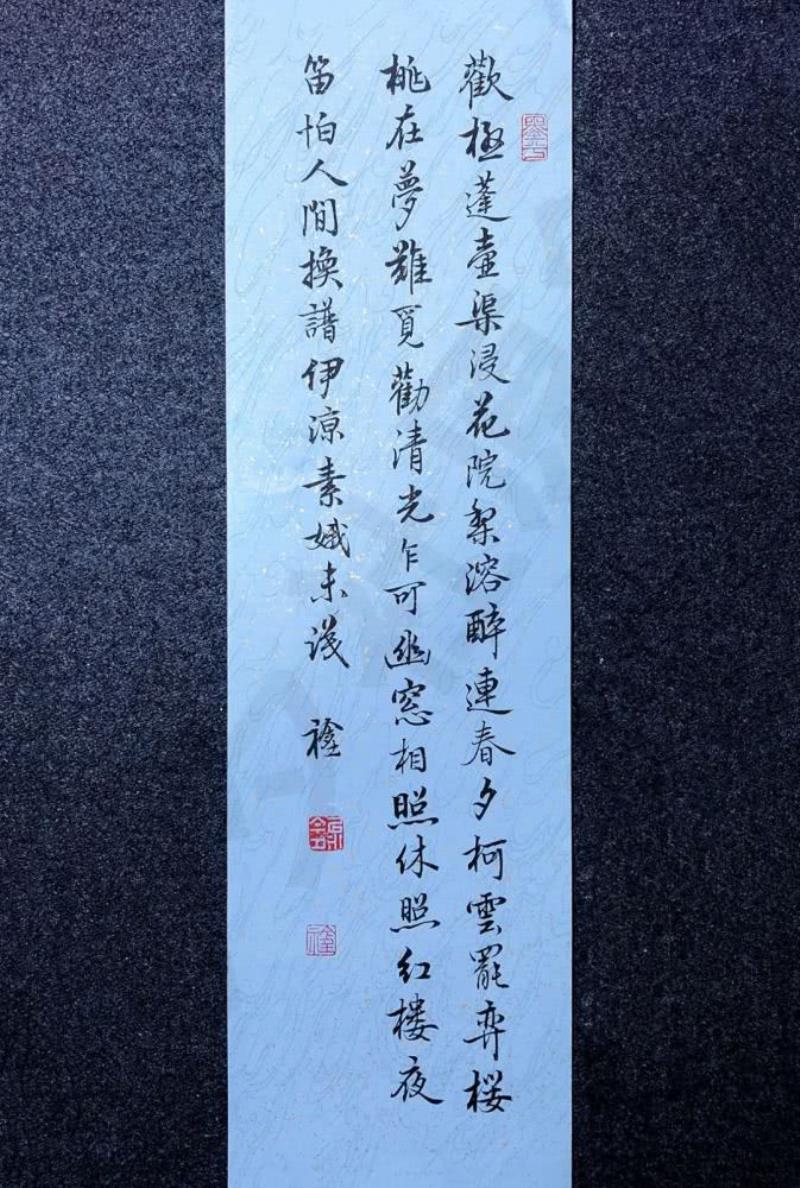 歡極蓬壺渠浸花院梨溶醉連春夕柯雲罷弈櫻
桃在夢難覓勸清光乍可幽窓相照休照紅樓夜
笛怕人間換譜伊涼素娥未識